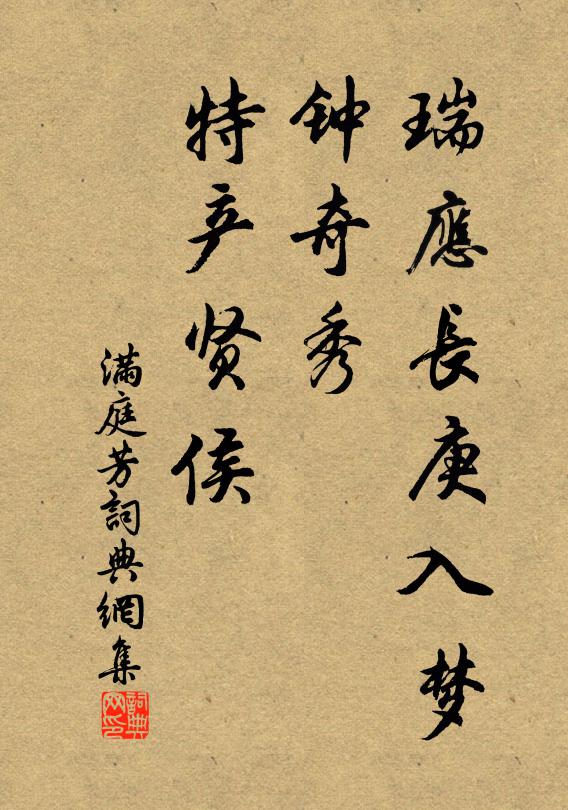 瑞應長庚入梦
钟奇秀
特产贤侯
滿庭芳詞典網集
詞典网印